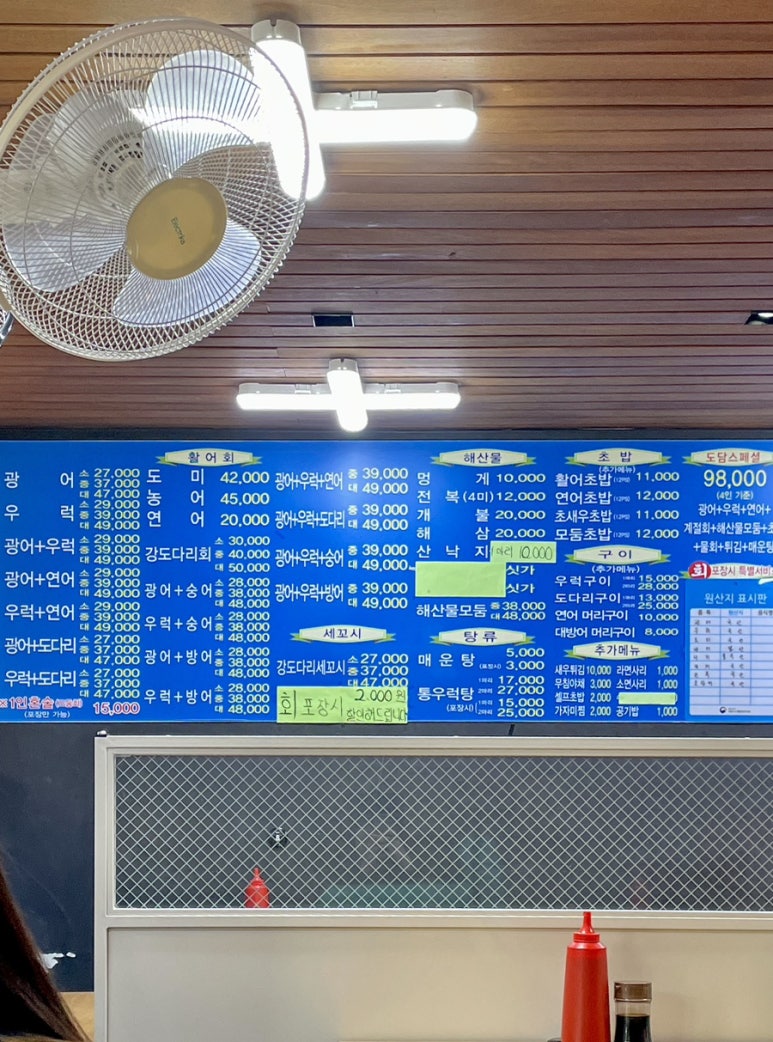 활어회
광 어 소 27,000
중 37,000
대 47,000
우 럭 소 29,000
중 39,000
대 49,000
광어+우럭 소 29,000
중 39,000
대 49,000
광어+연어 소 29,000
중 39,000
대 49,000
우럭+연어 소 29,000
중 39,000
대 49,000
광어+도다리 소 27,000
중 37,000
대 47,000
우럭+도다리 소 27,000
중 37,000
대 47,000
1인혼술
15,000
(포장만 가능)
도 미 42,000
농 어 45,000
연 어 20,000
강도다리회 소 30,000
중 40,000
대 50,000
광어+숭어 소 28,000
중 38,000
대 48,000
우럭+숭어 소 28,000
중 38,000
대 48,000
광어+방어 소 28,000
중 38,000
대 48,000
우럭+방어 소 28,000
중 38,000
대 48,000
광어+우럭+연어 중 39,000
대 49,000
광어+우럭+도다리 중 39,000
대 49,000
광어+우럭+숭어 중 39,000
대 49,000
광어+우럭+방어 중 39,000
대 49,000
세꼬시
강도다리세꼬시 소 27,000
중 37,000
대 47,000
회 포장시 2,000원
할인해드립니다
해산물
멍 게 10,000
전 복(4미) 12,000
개 불 20,000
해 삼 20,000
산 낙 지 1마리 10,000
싯가
싯가
해산물모둠 중 38,000
대 48,000
탕류
매 운 탕 5,000
(포장시) 3,000
통우럭탕 1마리 17,000
2마리 27,000
(포장시) 1마리 15,000
2마리 25,000
초밥
(추가메뉴)
활어초밥(12PS) 11,000
연어초밥(12PS) 12,000
초새우초밥(12PS) 11,000
모둠초밥(12PS) 12,000
구이
(추가메뉴)
우럭구이 1마리 15,000
2마리 28,000
도다리구이 1마리 13,000
2마리 25,000
연어 머리구이 10,000
대방어 머리구이 8,000
추가메뉴
새우튀김 10,000 라면사리 1,000
무침야채 3,000 소면사리 1,000
셀프초밥 2,000
가자미찜 2,000 공기밥 1,000
도담스페셜
98,000
(4인 기준)
광어+우럭+연어+
계절회+해산물모둠+초
+물회+튀김+매운탕
회 포장시 특별서비
원산지 표시판
품 목 원산지 음식명